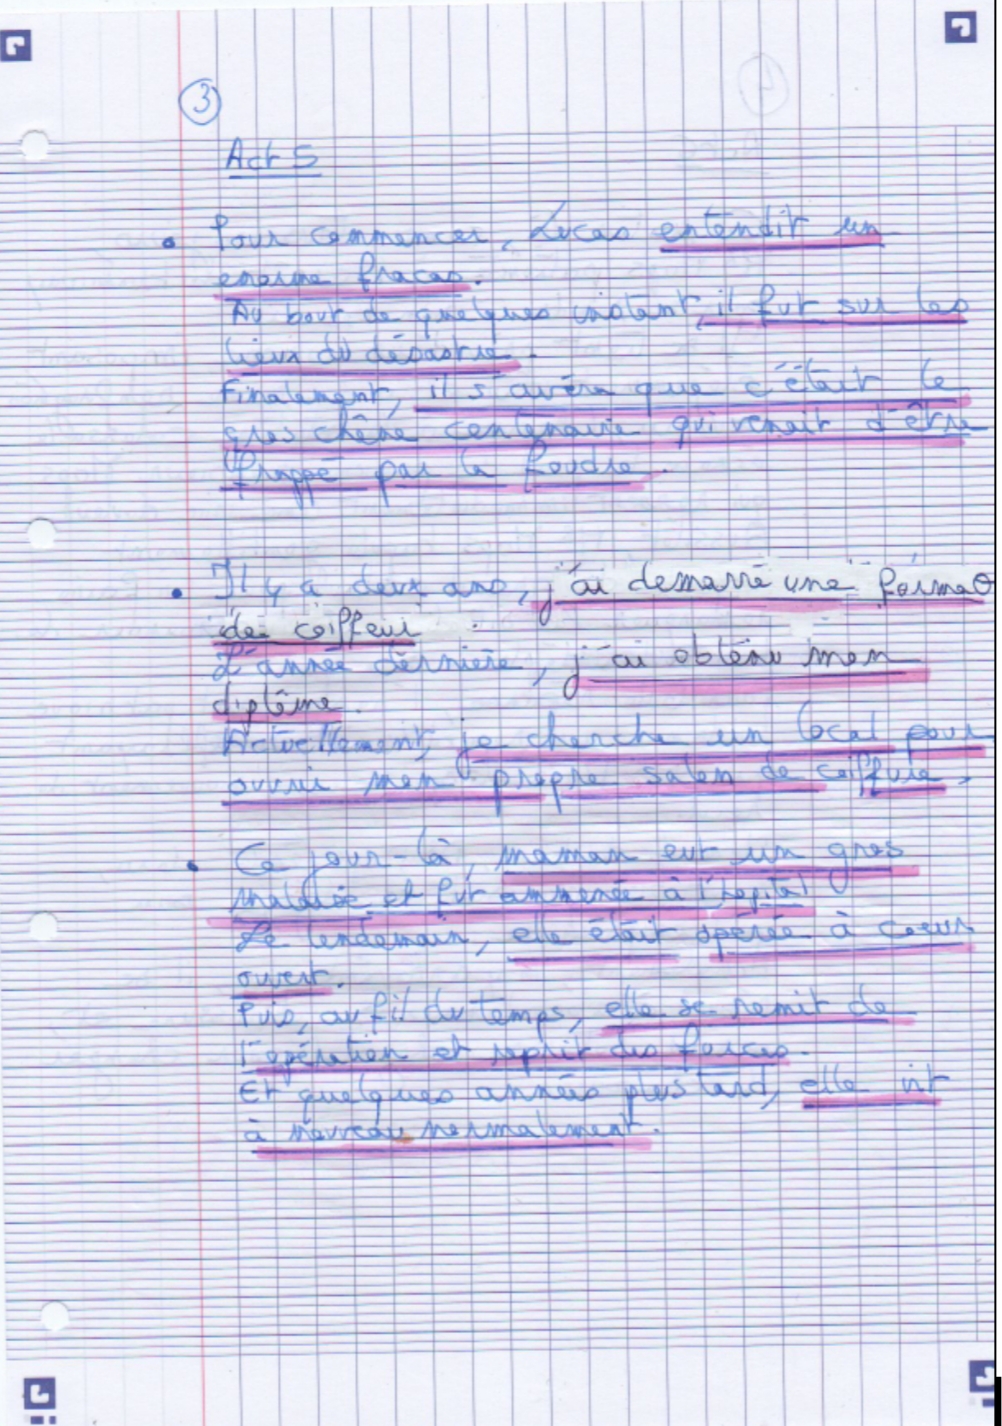 3
Act 5
• Pour commencer, Lucas entendit un
enorme fracas.
Au bout de quelques instant, il fut sur les
lieux du désastre.
Finalement, il s'avéra que c'était le
gros chêne centenaire qui venait d'être
frappé par la foudre.
• Il y a deux ans, j'ai demarré une format
de coiffeur.
L'année dernière, j'ai obtenu mon
diplôme.
Actuellement, je cherche un local pour
ouvrir mon propre salon de coiffure.
• Ce jour-là, maman eut un gros
malaise et fut ammenée à l'hopital
Le lendemain, elle était opérée à coeur
ouvert.
Puis, au fil du temps, elle se remit de
l'opération et reprit des forces.
Et quelques années plus tard, elle vit
à nouveau normalement.